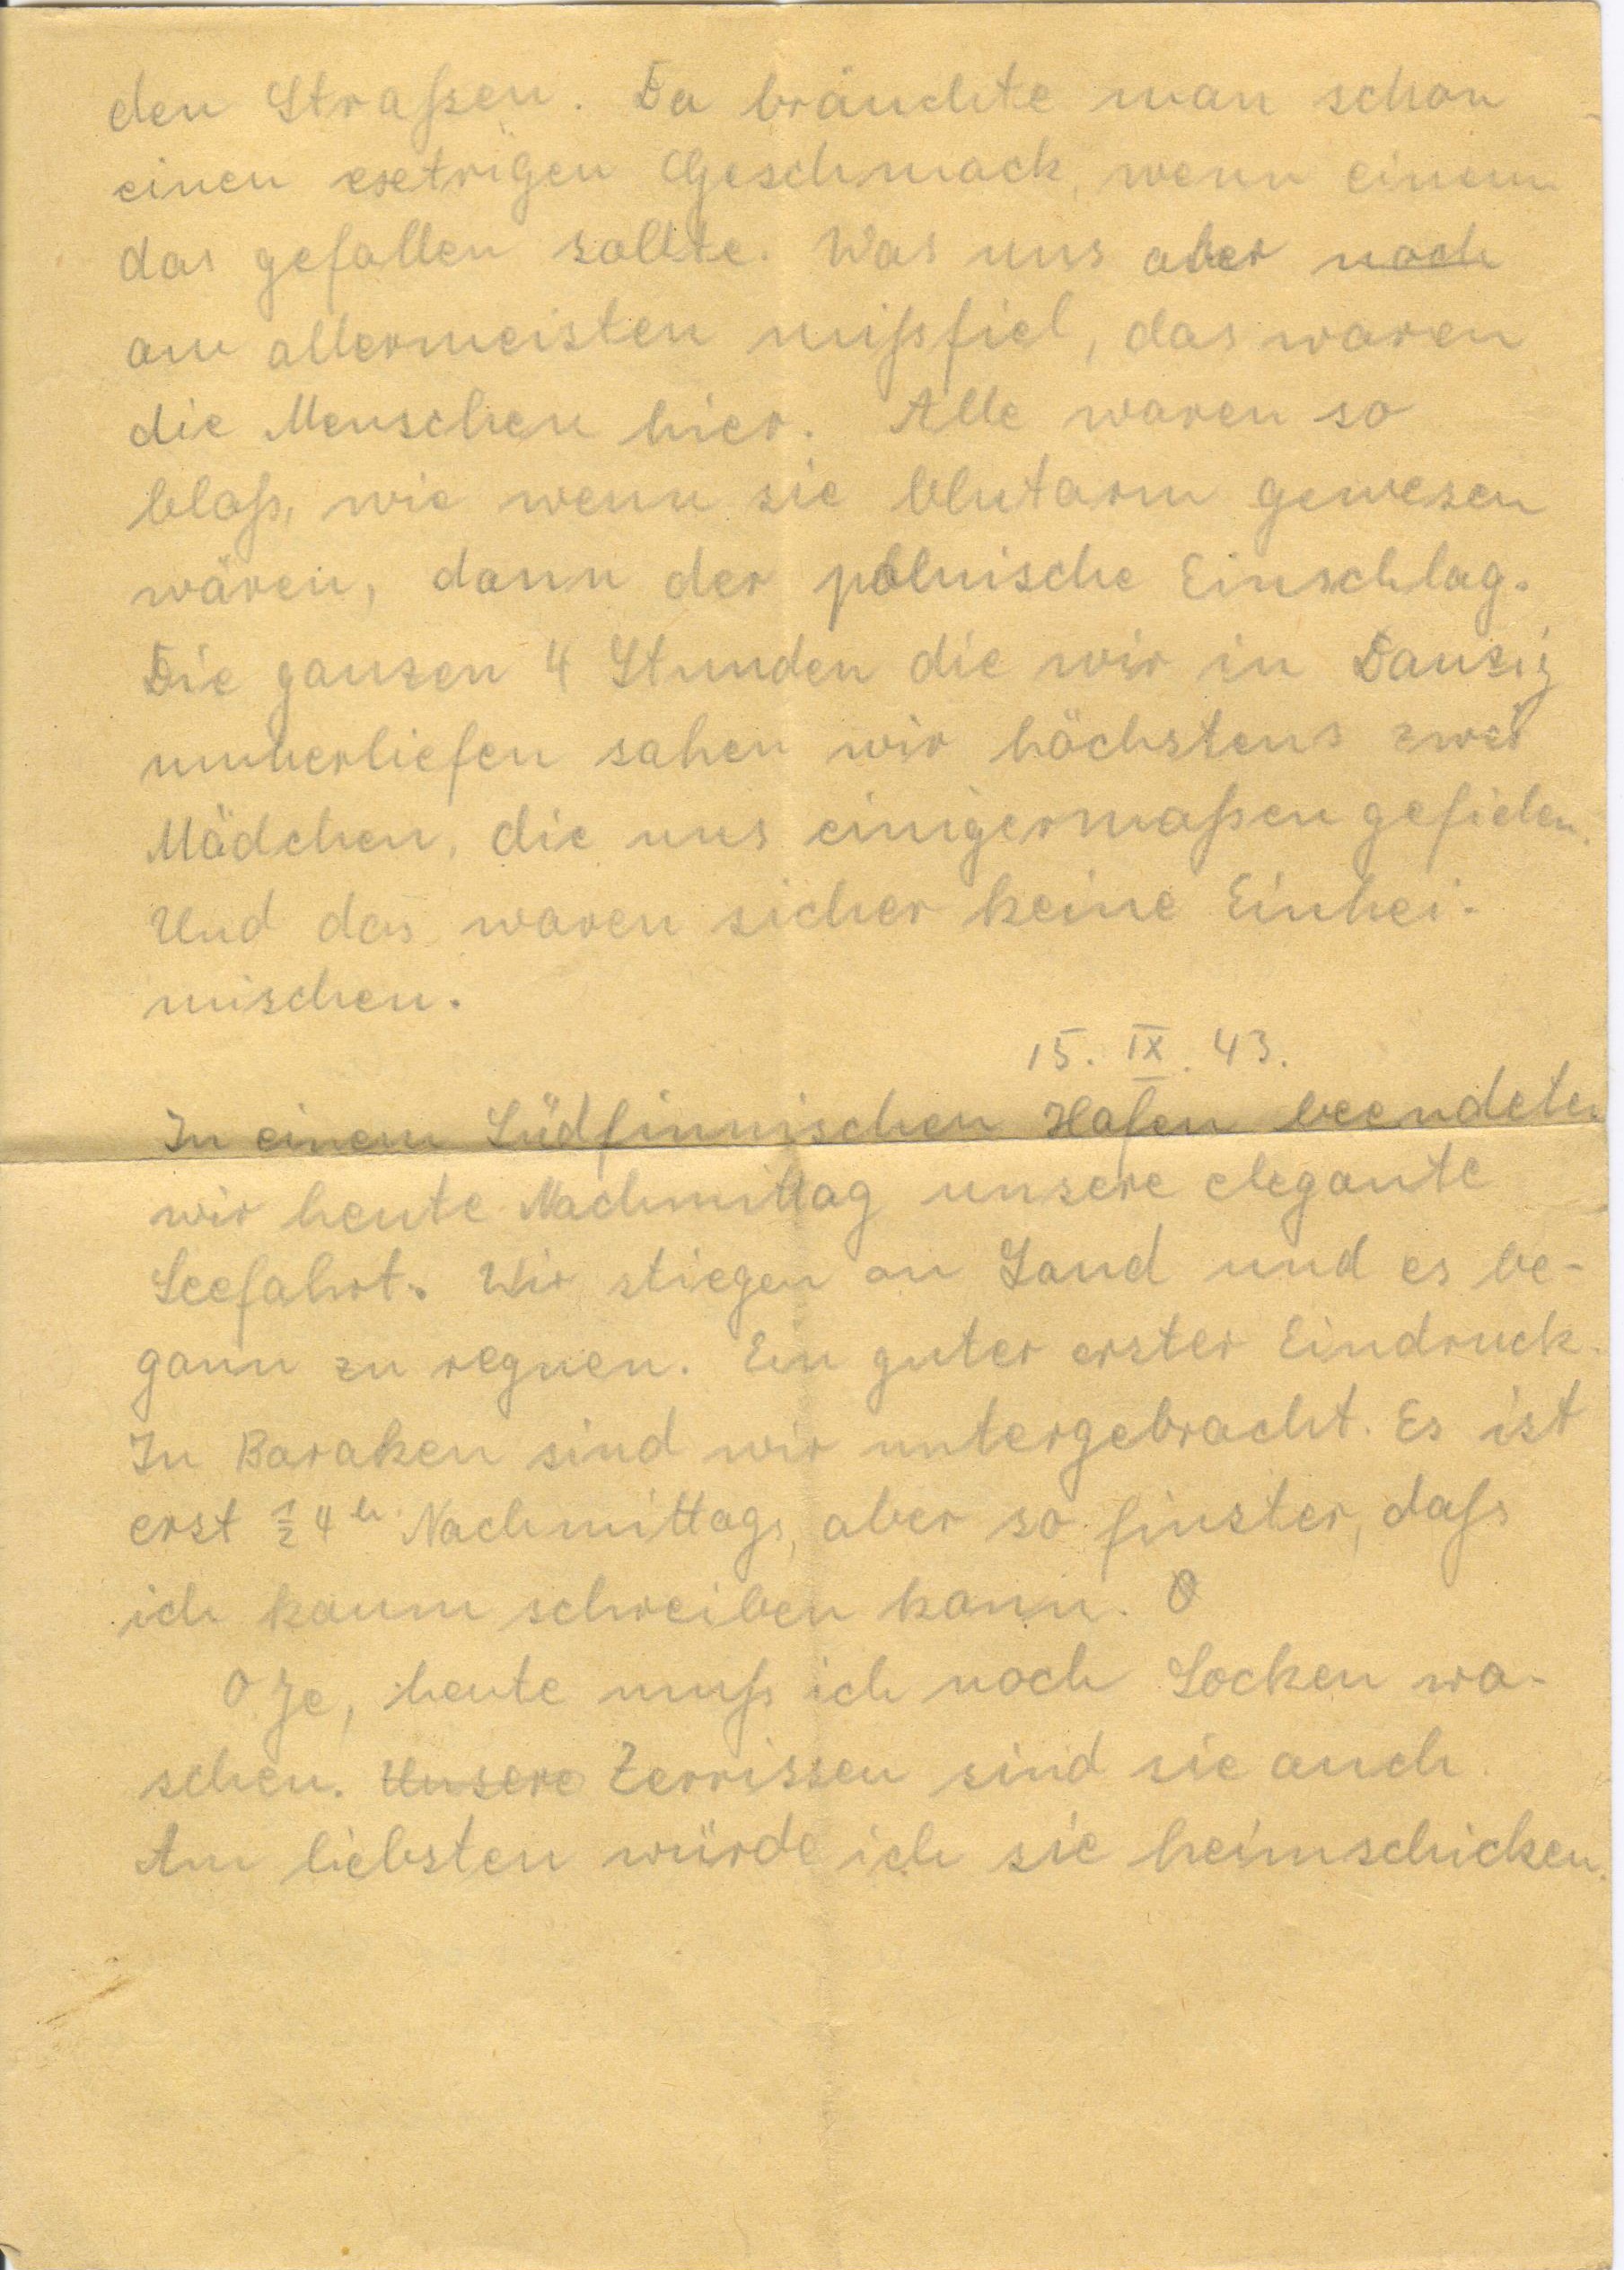 den Straßen. Da bräuchte man schon
einen Geschmack, wenn einem
das gefallen sollte. Was uns aber noch
am allermeisten mißfiel, das waren
die Menschen hier. Alle waren so
blaß, wie wenn sie blutarm gewesen
wären, dann der polnische Einschlag.
Die ganzen 4 Stunden die wir in Danzig
umherliefen sahen wir höchstens zwei
Mädchen, die uns einigermaßen gefielen.
Und das waren sicher keine Einhei-
mischen.
15. IX. 43.
In einem Südfinnischen Hafen beendeten
wir heute Nachmittag unsere elegante
Seefahrt. Wir stiegen an Land und es be-
gann zu regnen. Ein guter erster Eindruck.
In Baraken sind wir untergebracht. Es ist
erst ½ 4 h Nachmittags, aber so finster, daß
ich kaum schreiben kann. O
O Je, heute muß ich noch Socken wa-
schen. Unsere Zerrissen sind sie auch.
Am liebsten würde ich sie heimschicken.